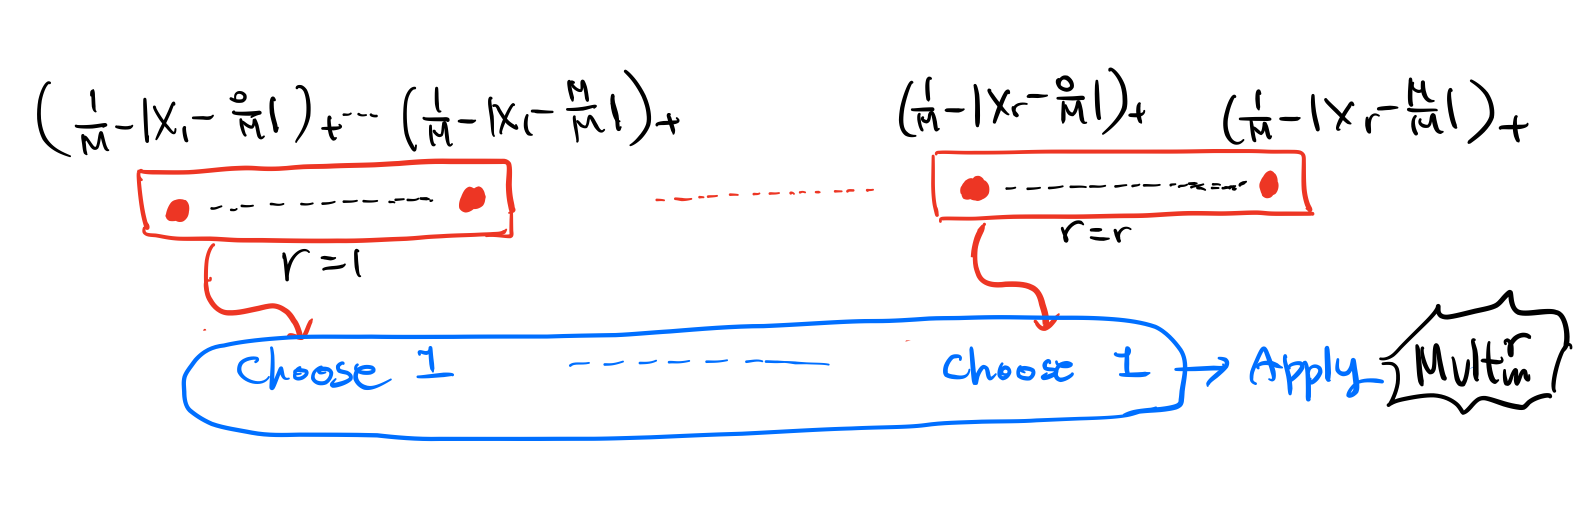 (1/M - |X₁ - 0/M|)₊ ... (1/M - |X₁ - M/M|)₊ (1/M - |X_r - 0/M|)₊ (1/M - |X_r - M/M|)₊
r = 1 r = r
Choose 1 Choose 1 → Apply Mult_m^r